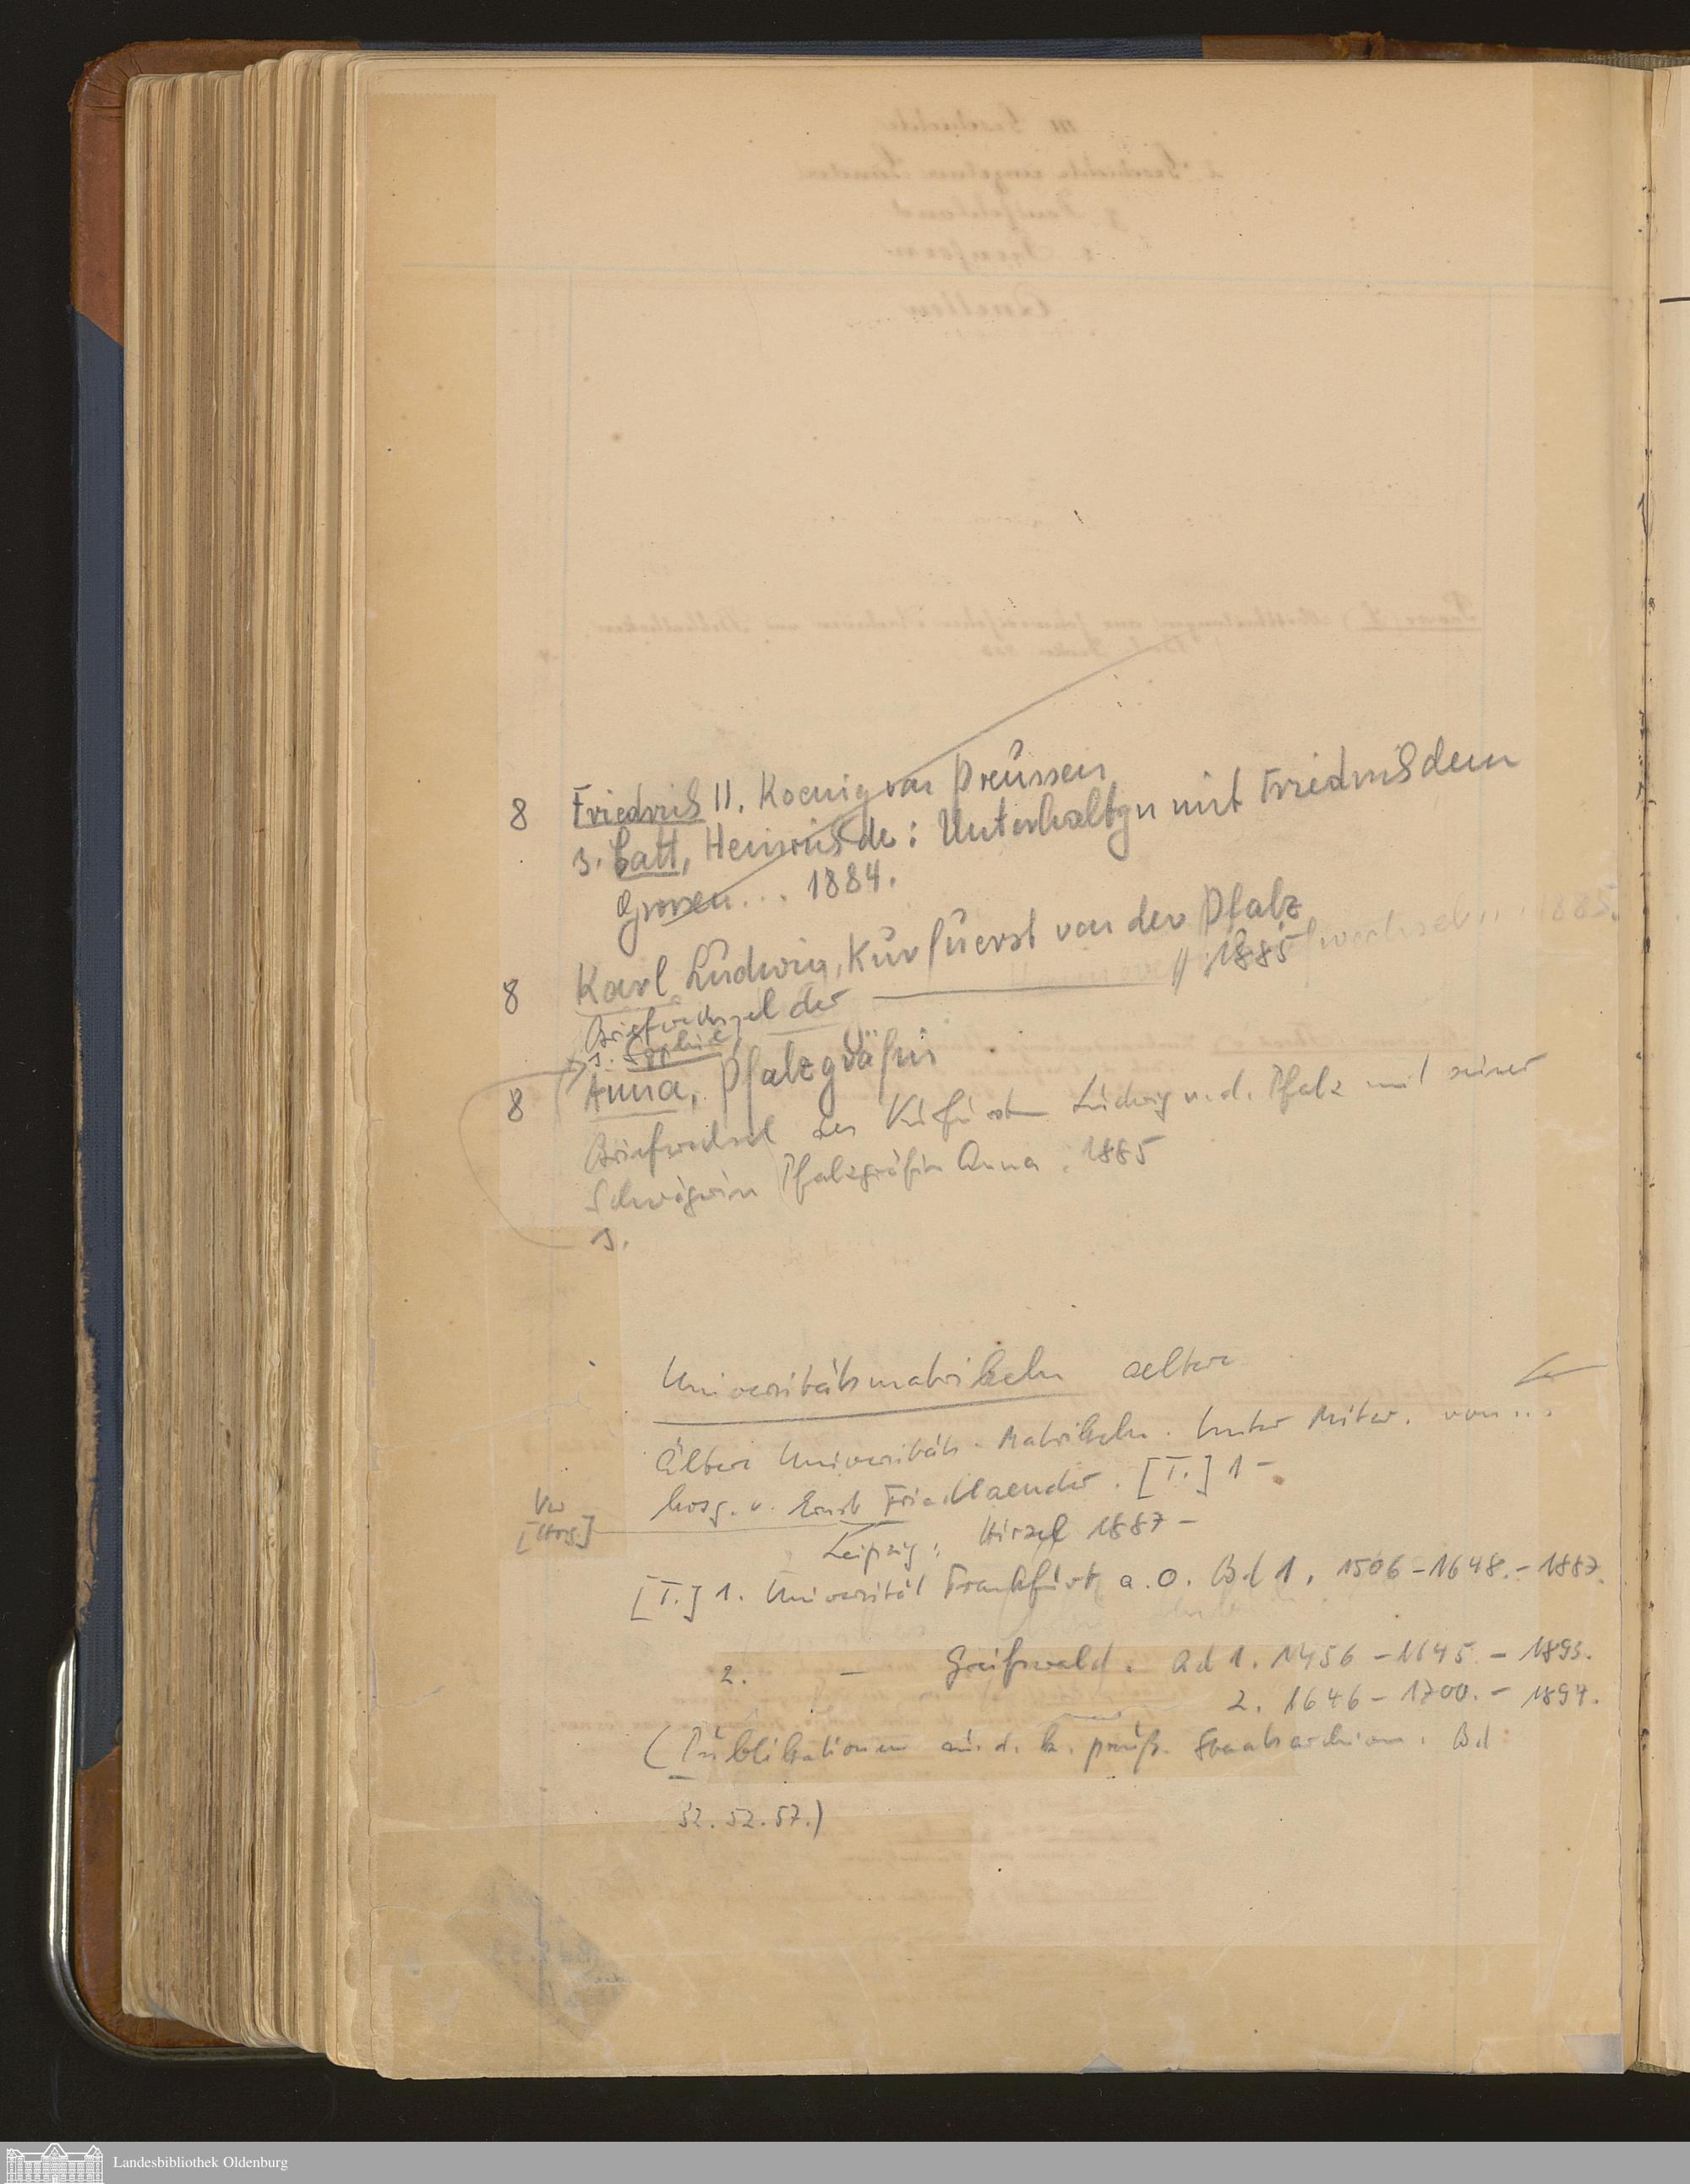 8 Friedrich II. Koenig von Preussen
s. Catt, Heinrich de: Unterhaltgn mit Friedrich dem
Grossen... 1884.
8 Karl Ludwig, Kurfuerst von der Pfalz
Briefwechsel der 1885
s. Sophie
8 Anna, Pfalzgräfin
Briefwechsel des Kurfürsten Ludwig v. d. Pfalz mit seiner
Schwägerin Pfalzgräfin Anna. 1885
s.
Universitätsmatrikeln aeltere
Ältere Universitäts-Matrikeln. Unter Mitw. von...
hrsg. v. Ernst Friedlaender. [T.] 1-
Vw
[Hrsg.]
Leipzig: Hirzel 1887-
[T.] 1. Universität Frankfurt a. O. Bd 1. 1506-1648.-1887.
2. — Greifswald. Bd 1. 1456-1645.-1893.
2. 1646-1700.-1894.
(Publikationen aus d. k. preuß. Staatsarchiven. Bd
32. 52. 57.)
Landesbibliothek Oldenburg